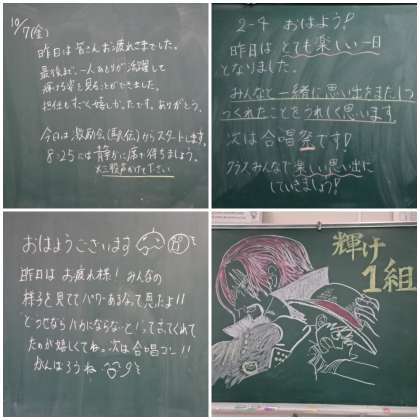 10/7(金)
昨日は皆さんお疲れさまでした。
最後まで、一人ひとりが活躍して
輝ける姿を見ることができました。
担任もすごく嬉しかったです。ありがとう。
今日は激励会(駅伝)からスタートします。
8:25には静かに席で待ちましょう。
声かけて下さい
2-4 おはよう!
昨日はとても楽しい一日
となりました。
みんなと一緒に思い出をまた1つ
つくれたことをうれしく思います
次は合唱祭です!
クラスみんなで楽しい思い出に
していきましょう!
おはようございます
昨日はお疲れ様!みんなの
様子を見ててパワーあるなって思ったよ!!
どうせならバカにならないと!ってきてくれて
たのが嬉しくてね。次は合唱コン!!
がんばろうね
輝け
1組